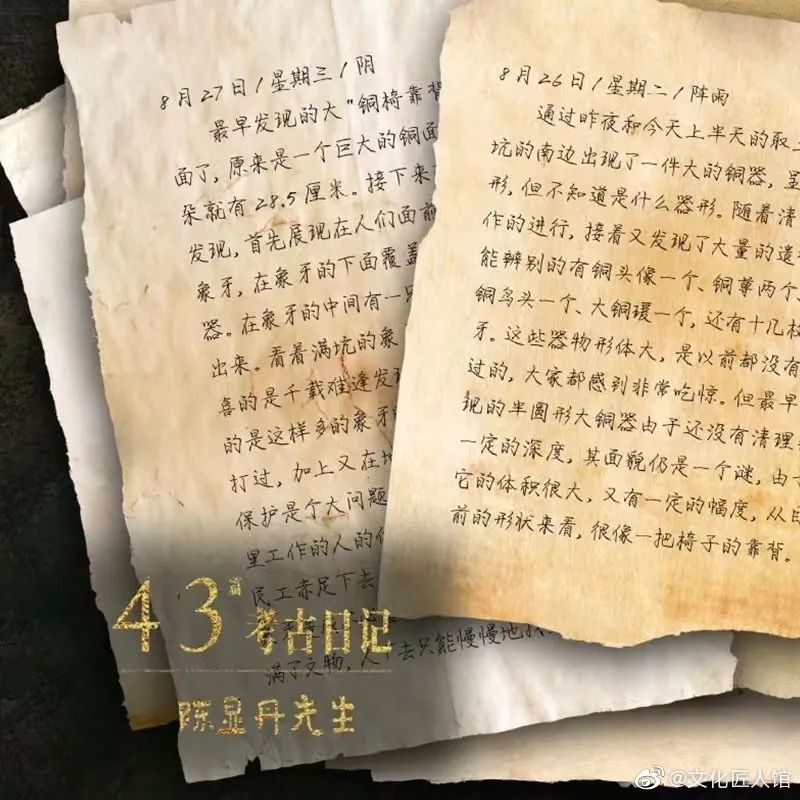 8月27日/星期三/阴
最早发现的大“铜椅靠背
面了，原来是一个巨大的铜面
朵就有28.5厘米。接下来
发现，首先展现在人们面前
象牙，在象牙的下面覆盖
器。在象牙的中间有一
出来。看着满坑的象
喜的是千载难逢发现
的是这样多的象牙
打过，加上又在地
保护是个大问题
里工作的人的
民工赤足下去
满了文物，人下去只能慢慢地找
8月26日/星期二/阵雨
通过昨夜和今天上半天的取土
坑的南边出现了一件大的铜器，显
形，但不知道是什么器形。随着清
作的进行，接着又发现了大量的遗
能辨别的有铜头像一个、铜尊两个、
铜鸟头一个、大铜瑗一个，还有十几枚
牙。这些器物形体大，是以前都没有
过的，大家都感到非常吃惊。但最早
现的半圆形大铜器由于还没有清理
一定的深度，其面貌仍是一个谜，由于
它的体积很大，又有一定的幅度，从目
前的形状来看，很像一把椅子的靠背。
43篇考古日记
陈显丹先生
@文化匠人馆